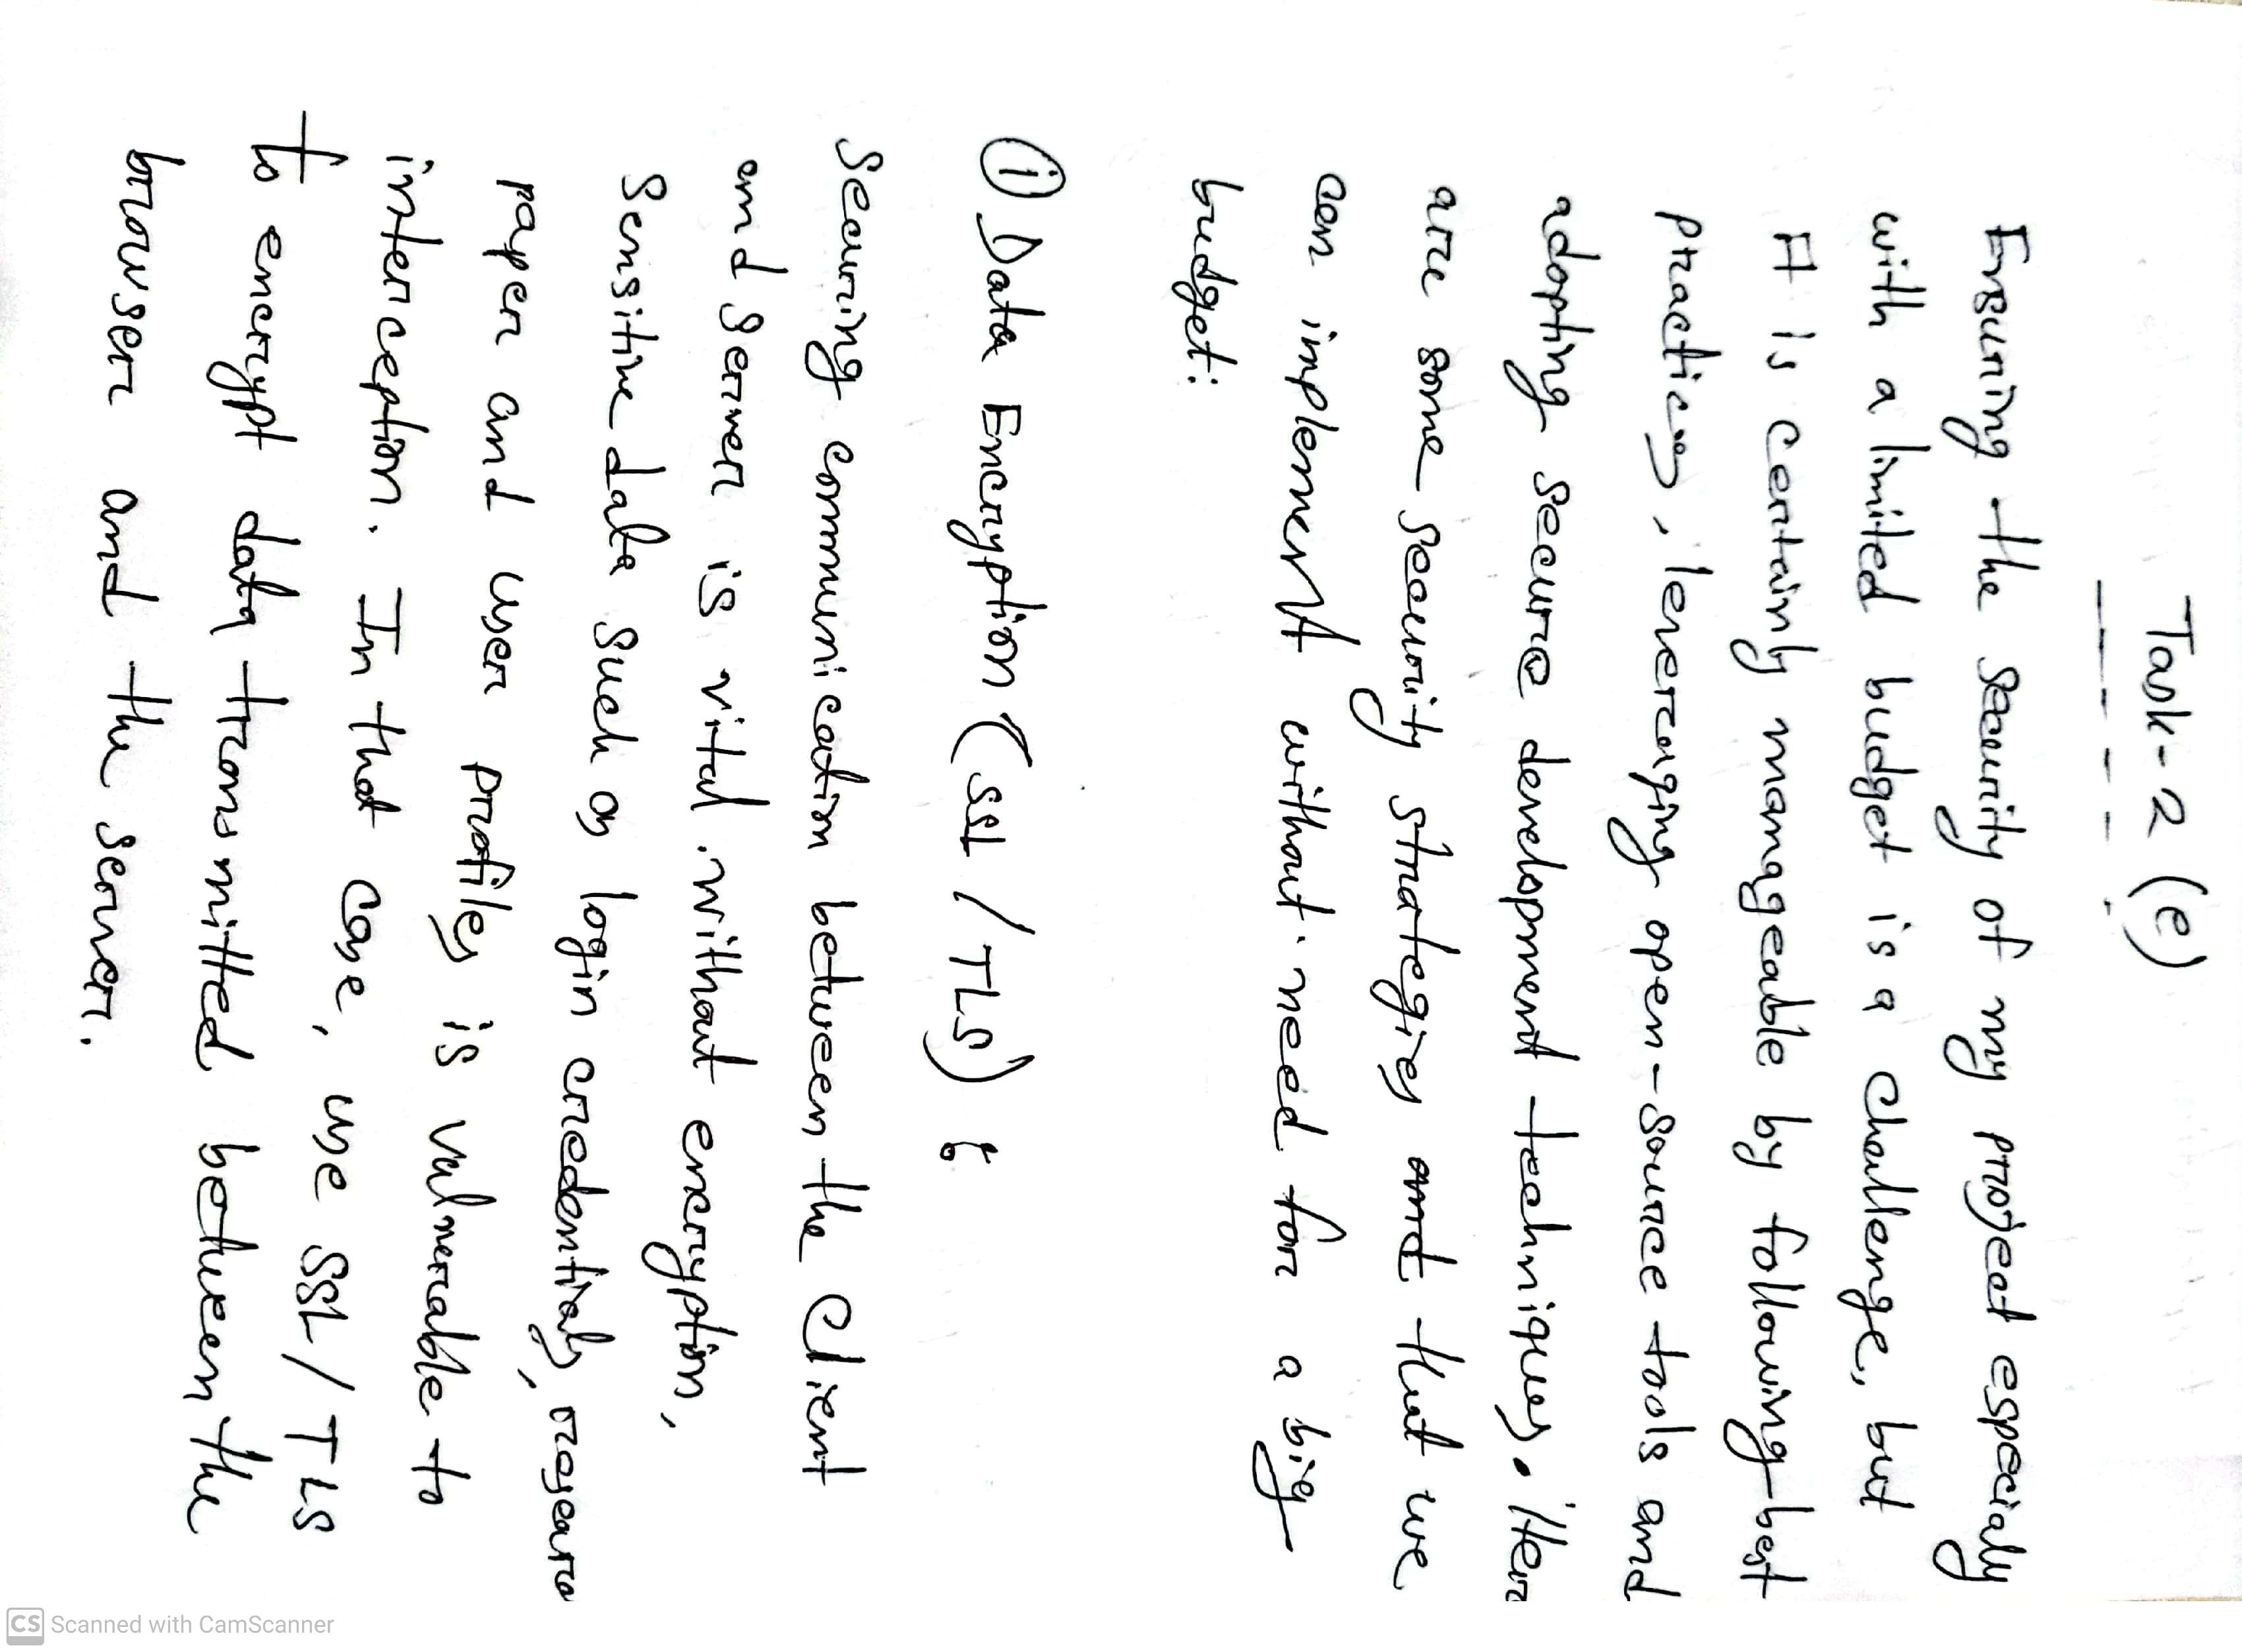 Task-2 (e)
Ensuring the security of my project especially
with a limited budget is a challenge, but
It is certainly manageable by following best
practices, leveraging open-source tools and
adopting secure development techniques. Here
are some security strategies and that we
can implement without need for a big
budget:
① Data Encryption (SSL / TLS) :
Securing communication between the client
and server is vital. without encryption,
Sensitive data such as login credentials,
paper and user profiles is vulnerable to
interception. In that case, use SSL / TLS
to encrypt data transmitted between the
browser and the server.
CS Scanned with CamScanner